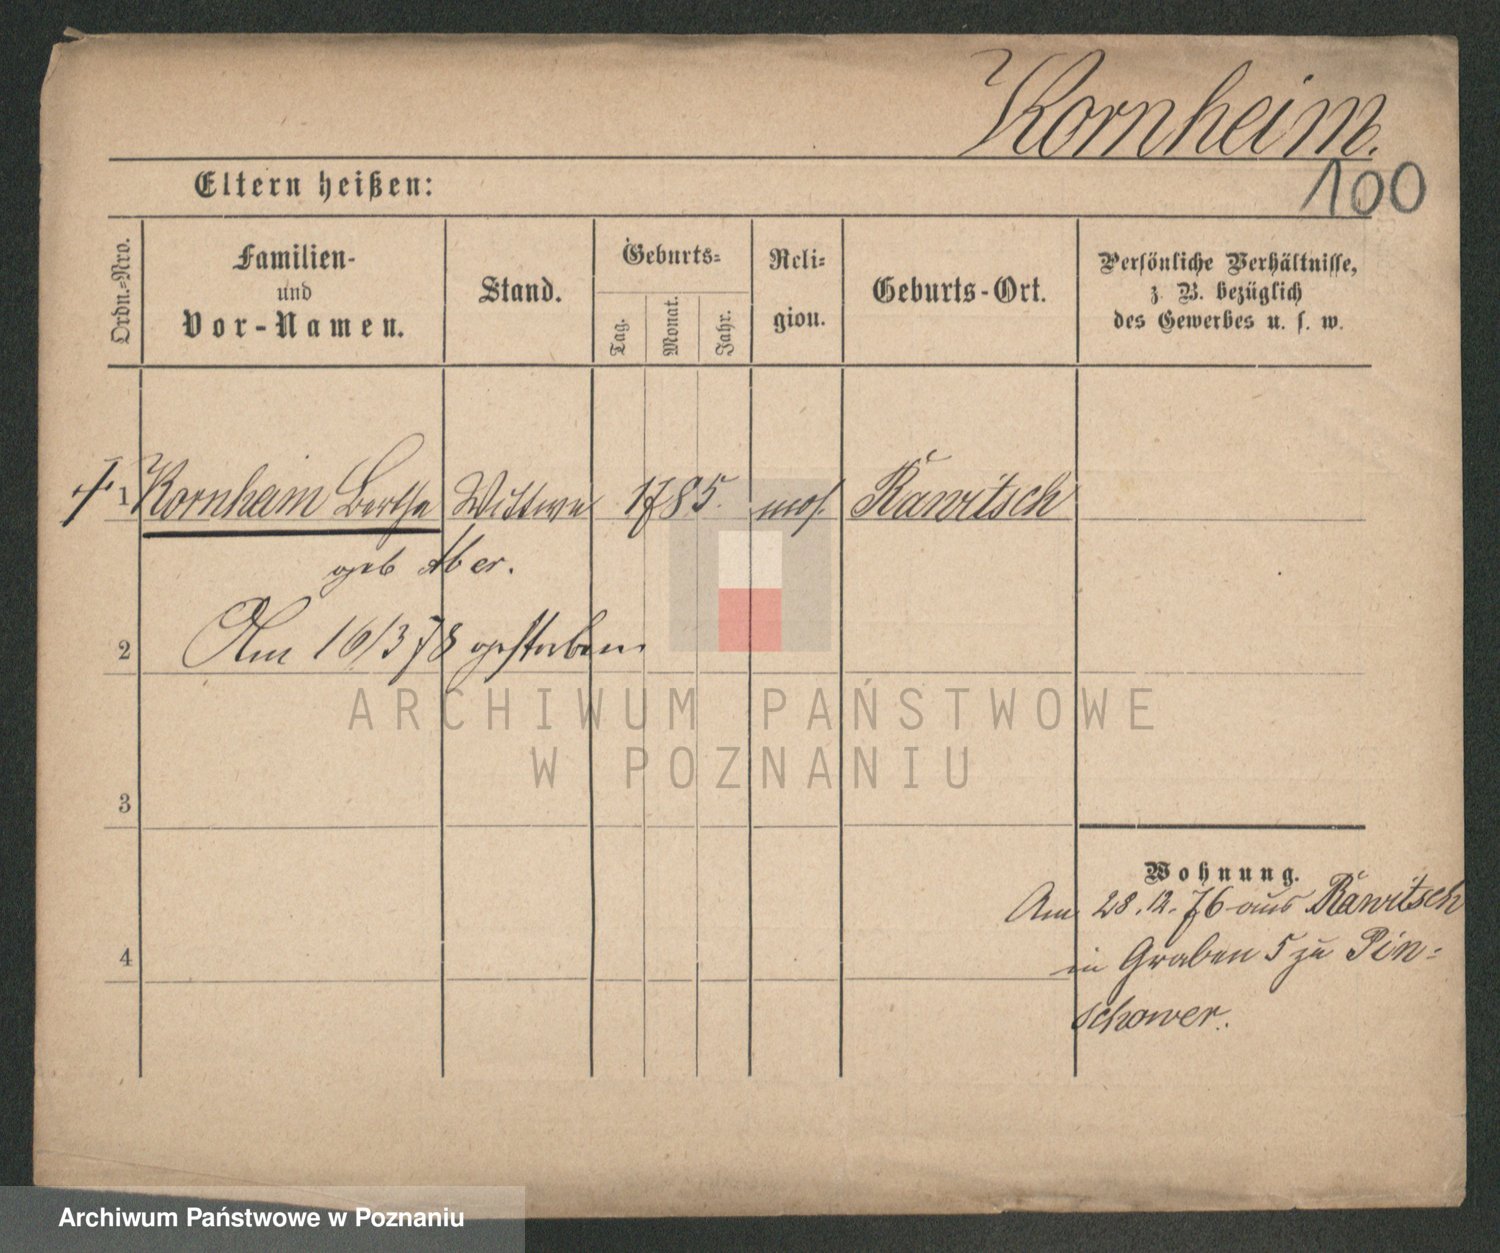 Kornheim.
100
Eltern heißen:
Ordn.-Nro.
Familien-
und
Vor-Namen.
Stand.
Geburts-
Tag.
Monat.
Jahr.
Reli-
gion.
Geburts-Ort.
Persönliche Verhältnisse,
z. B. bezüglich
des Gewerbes u. s. w.
† 1 Kornheim Bertha Wittwe 1785. mos. Rawitsch
geb Aber.
2 Am 16/3 78 gestorben.
ARCHIWUM PAŃSTWOWE
W POZNANIU
3
Wohnung.
Am 28.12.76 aus Rawitsch
4
in Graben 5 zu Pin-
schower.
Archiwum Państwowe w Poznaniu